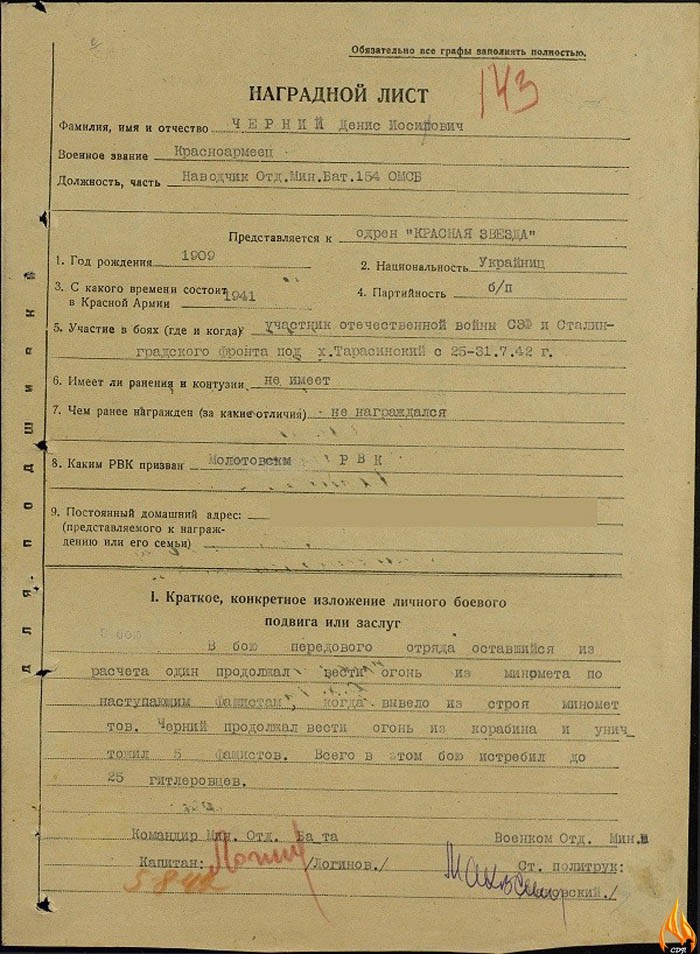 Обязательно все графы заполнять полностью.
143
НАГРАДНОЙ ЛИСТ
Фамилия, имя и отчество ЧЕРНИЙ Денис Иосипович
Военное звание Красноармеец
Должность, часть Наводчик Отд.Мин.Бат.154 ОМСБ
Представляется к одрен "КРАСНАЯ ЗВЕЗДА"
1. Год рождения 1909
2. Национальность Украйниц
3. С какого времени состоит
в Красной Армии 1941
4. Партийность б/п
5. Участие в боях (где и когда) участник отечественной войны СЗФ и Сталин-
градского Фронта под х.Тарасинский с 25-31.7.42 г.
6. Имеет ли ранения и контузии не имеет
7. Чем ранее награжден (за какие отличия) не награждался
8. Каким РВК призван Молотовским РВК
9. Постоянный домашний адрес:
(представляемого к награж-
дению или его семьи)
I. Краткое, конкретное изложение личного боевого
подвига или заслуг
В бою передового отряда оставшийся из
расчета один продолжал вести огонь из миномета по
наступающим Фашистам, когда вывело из строя миномет
тов. Черний продолжал вести огонь из корабина и унич
тожил 5 фашистов. Всего в этом бою истребил до
25 гитлеровцев.
Командир Мин. Отд. Ба_та Военком Отд. Мин.
Капитан: /Логинов./ Ст. политрук:
новский./
5842
для подшивки
СДЯ